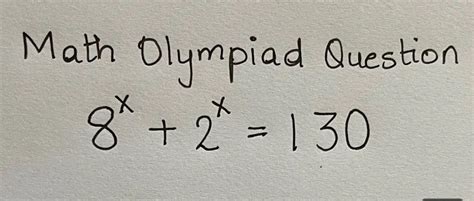 Math Olympiad Question
8ˣ + 2ˣ = 130